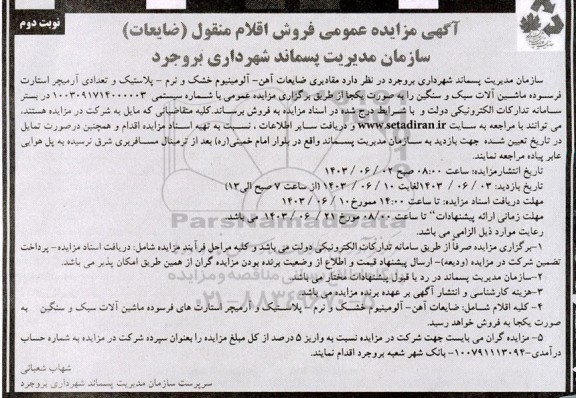 نوبت دوم
آگهی مزایده عمومی فروش اقلام منقول (ضایعات)
سازمان مدیریت پسماند شهرداری بروجرد
سازمان مدیریت پسماند شهرداری بروجرد در نظر دارد مقادیری ضایعات آهن- آلومینیوم خشک و نرم - پلاستیک و تعدادی آرمیچر استارت
فرسوده ماشین آلات سبک و سنگین را به صورت یکجا از طریق برگزاری مزایده عمومی با شماره سیستمی ۱۰۰۳۰۹۱۷۱۴۰۰۰۰۰۳ در بستر
سامانه تدارکات الکترونیکی دولت و با شرایط درج شده در اسناد مزایده به فروش برساند.کلیه متقاضیانی که مایل به شرکت در مزایده هستند،
می توانند با مراجعه به سایت www.setadiran.ir و دریافت سایر اطلاعات ، نسبت به تهیه اسناد مزایده اقدام و همچنین درصورت تمایل
در تاریخ تعیین شده جهت بازدید به سازمان مدیریت پسماند واقع در بلوار امام خمینی(ره) بعد از ترمینال مسافربری شرق نرسیده به پل هوایی
عابر پیاده مراجعه نمایند.
تاریخ انتشار مزایده: ساعت ۰۸:۰۰ صبح ۰۲ / ۰۶ / ۱۴۰۳
تاریخ بازدید: ۰۳ / ۰۶ / ۱۴۰۳ لغایت ۱۰ / ۰۶ / ۱۴۰۳ (از ساعت ۷ صبح الی۱۳)
مهلت دریافت اسناد مزایده: تا ساعت ۱۴:۰۰ مورخ ۱۰ / ۰۶ / ۱۴۰۳
مهلت زمانی ارائه پیشنهادات" تا ساعت ۰۸/۰۰ مورخ ۲۱ / ۰۶ / ۱۴۰۳ می باشد.
رعایت موارد ذیل الزامی می باشد.
۱-برگزاری مزایده صرفا از طریق سامانه تدارکات الکترونیکی دولت می باشد و کلیه مراحل فرآیند مزایده شامل: دریافت اسناد مزایده- پرداخت
تضمین شرکت در مزایده (ودیعه)– ارسال پیشنهاد قیمت و اطلاع از وضعیت برنده بودن مزایده گران از همین طریق امکان پذیر می باشد.
۲-سازمان مدیریت پسماند در رد یا قبول پیشنهادات مختار می باشد
۳-هزینه کارشناسی و انتشار آگهی بر عهده برنده مزایده می باشد
۴- کلیه اقلام شامل: ضایعات آهن- آلومینیوم خشک و نرم - پلاستیک و آرمیچر استارت های فرسوده ماشین آلات سبک و سنگین به
صورت یکجا به فروش خواهد رسید.
۵- مزایده گران می بایست جهت شرکت در مزایده نسبت به واریز ۵ درصد از کل مبلغ مزایده را بعنوان سپرده شرکت در مزایده به شماره حساب
درآمدی۱۰۰۷۹۱۱۱۳۰۹۴- بانک شهر شعبه بروجرد اقدام نمایند.
شهاب شعبانی
سرپرست سازمان مدیریت پسماند شهرداری بروجرد
ParsNamadData